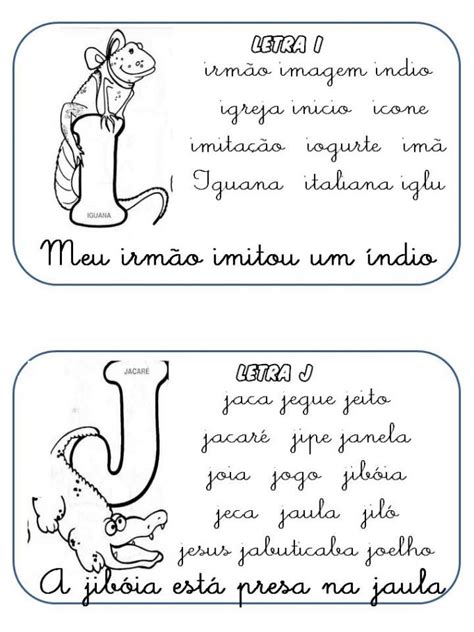 LETRA I
irmão imagem índio
igreja inicio icone
imitação iogurte imã
Iguana italiana iglu
IGUANA
Meu irmão imitou um índio
JACARÉ
LETRA J
jaca jegue jeito
jacaré jipe janela
joia jogo jibóia
jeca jaula jiló
jesus jabuticaba joelho
A jibóia está presa na jaula